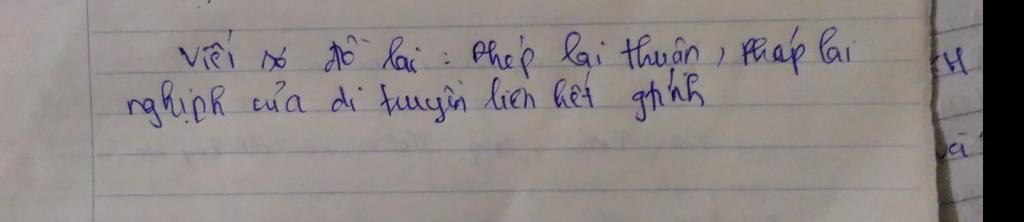 Viết sơ đồ lai : Phép lai thuận, Phép lai
nghịch của di truyền liên kết giới tính